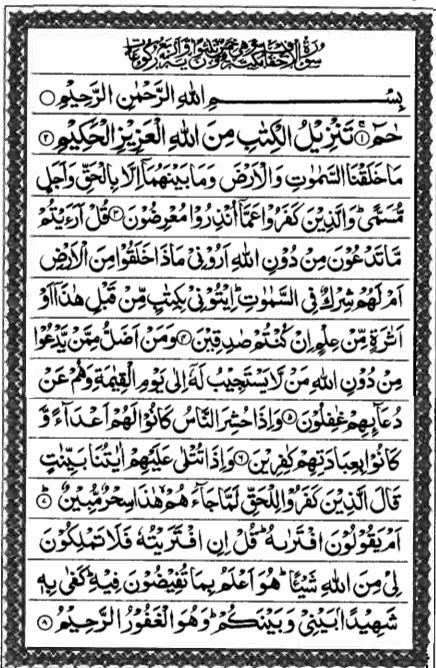 سورة الاحقاف مكية
بِسْمِ اللهِ الرَّحْمٰنِ الرَّحِيْمِ ○
حٰمٓ ۚ﴿۱﴾ تَنْزِيْلُ الْكِتٰبِ مِنَ اللهِ الْعَزِيْزِ الْحَكِيْمِ ﴿۲﴾
مَا خَلَقْنَا السَّمٰوٰتِ وَالْاَرْضَ وَمَا بَيْنَهُمَاۤ اِلَّا بِالْحَقِّ وَاَجَلٍ
مُّسَمًّى ؕ وَالَّذِيْنَ كَفَرُوْا عَمَّاۤ اُنْذِرُوْا مُعْرِضُوْنَ ﴿۳﴾ قُلْ اَرَءَيْتُمْ
مَّا تَدْعُوْنَ مِنْ دُوْنِ اللهِ اَرُوْنِيْ مَاذَا خَلَقُوْا مِنَ الْاَرْضِ
اَمْ لَهُمْ شِرْكٌ فِي السَّمٰوٰتِ ؕ اِيْتُوْنِيْ بِكِتٰبٍ مِّنْ قَبْلِ هٰذَاۤ اَوْ
اَثٰرَةٍ مِّنْ عِلْمٍ اِنْ كُنْتُمْ صٰدِقِيْنَ ﴿۴﴾ وَمَنْ اَضَلُّ مِمَّنْ يَّدْعُوْا
مِنْ دُوْنِ اللهِ مَنْ لَّا يَسْتَجِيْبُ لَهٗۤ اِلٰى يَوْمِ الْقِيٰمَةِ وَهُمْ عَنْ
دُعَآئِهِمْ غٰفِلُوْنَ ﴿۵﴾ وَاِذَا حُشِرَ النَّاسُ كَانُوْا لَهُمْ اَعْدَآءً وَّ
كَانُوْا بِعِبَادَتِهِمْ كٰفِرِيْنَ ﴿۶﴾ وَاِذَا تُتْلٰى عَلَيْهِمْ اٰيٰتُنَا بَيِّنٰتٍ
قَالَ الَّذِيْنَ كَفَرُوْا لِلْحَقِّ لَمَّا جَآءَهُمْ ۙ هٰذَا سِحْرٌ مُّبِيْنٌ ؕ﴿۷﴾
اَمْ يَقُوْلُوْنَ افْتَرٰىهُ ؕ قُلْ اِنِ افْتَرَيْتُهٗ فَلَا تَمْلِكُوْنَ
لِيْ مِنَ اللهِ شَيْئًا ؕ هُوَ اَعْلَمُ بِمَا تُفِيْضُوْنَ فِيْهِ ؕ كَفٰى بِهٖ
شَهِيْدًۢا بَيْنِيْ وَبَيْنَكُمْ ؕ وَهُوَ الْغَفُوْرُ الرَّحِيْمُ ﴿۸﴾